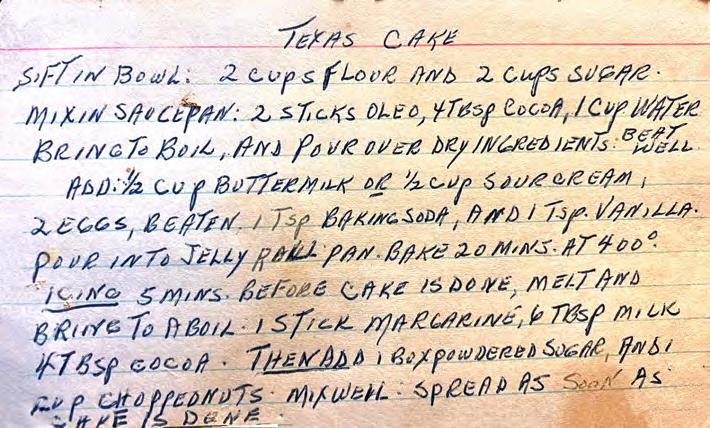 TEXAS CAKE
SIFT IN BOWL: 2 CUPS FLOUR AND 2 CUPS SUGAR.
MIX IN SAUCEPAN: 2 STICKS OLEO, 4 TBSP COCOA, 1 CUP WATER
BRING TO BOIL, AND POUR OVER DRY INGREDIENTS. BEAT WELL
ADD: 1/2 CUP BUTTERMILK OR 1/2 CUP SOUR CREAM,
2 EGGS, BEATEN. 1 TSP BAKING SODA, AND 1 TSP. VANILLA.
POUR INTO JELLY ROLL PAN. BAKE 20 MINS. AT 400°.
ICING 5 MINS. BEFORE CAKE IS DONE, MELT AND
BRING TO A BOIL. 1 STICK MARGARINE, 6 TBSP MILK
4 TBSP COCOA. THEN ADD 1 BOX POWDERED SUGAR, AND 1
CUP CHOPPED NUTS. MIX WELL. SPREAD AS SOON AS
CAKE IS DONE.